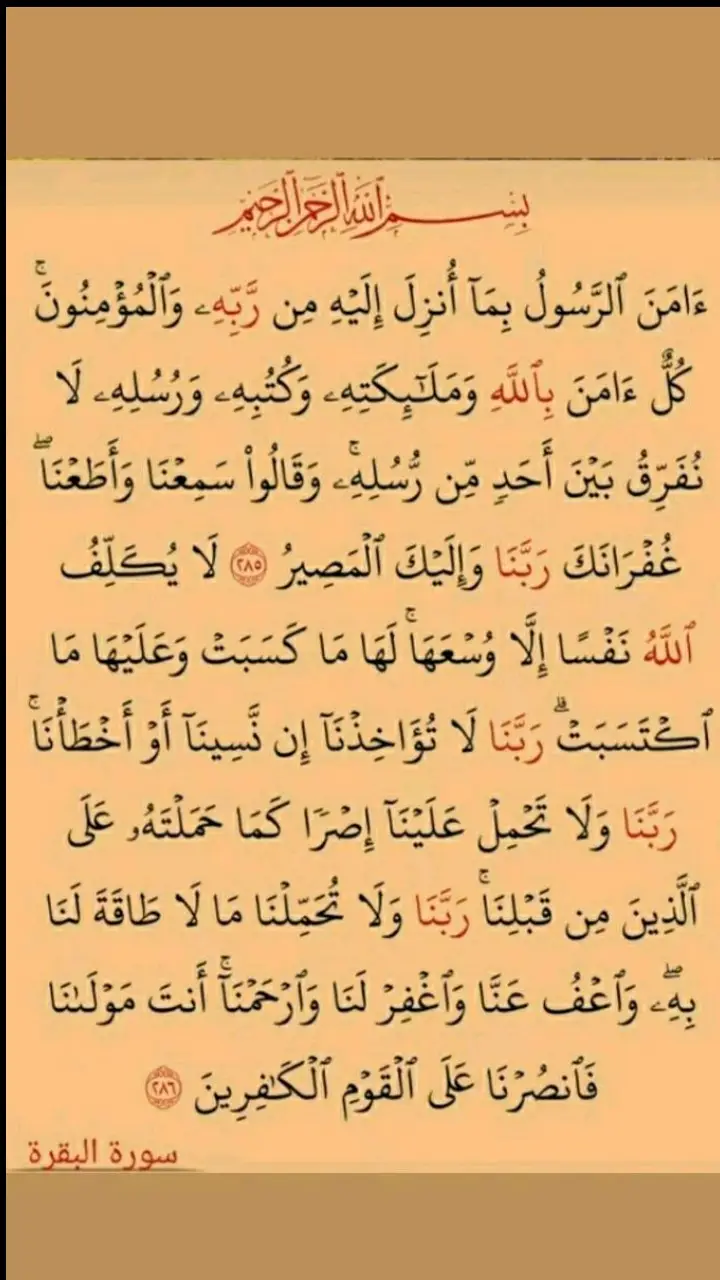 بِسْمِ ٱللَّهِ ٱلرَّحْمَٰنِ ٱلرَّحِيمِ
ءَامَنَ ٱلرَّسُولُ بِمَآ أُنزِلَ إِلَيْهِ مِن رَّبِّهِۦ وَٱلْمُؤْمِنُونَ ۚ
كُلٌّ ءَامَنَ بِٱللَّهِ وَمَلَٰٓئِكَتِهِۦ وَكُتُبِهِۦ وَرُسُلِهِۦ لَا
نُفَرِّقُ بَيْنَ أَحَدٍ مِّن رُّسُلِهِۦ ۚ وَقَالُوا۟ سَمِعْنَا وَأَطَعْنَا ۖ
غُفْرَانَكَ رَبَّنَا وَإِلَيْكَ ٱلْمَصِيرُ ٢٨٥ لَا يُكَلِّفُ
ٱللَّهُ نَفْسًا إِلَّا وُسْعَهَا ۚ لَهَا مَا كَسَبَتْ وَعَلَيْهَا مَا
ٱكْتَسَبَتْ ۗ رَبَّنَا لَا تُؤَاخِذْنَآ إِن نَّسِينَآ أَوْ أَخْطَأْنَا ۚ
رَبَّنَا وَلَا تَحْمِلْ عَلَيْنَآ إِصْرًا كَمَا حَمَلْتَهُۥ عَلَى
ٱلَّذِينَ مِن قَبْلِنَا ۚ رَبَّنَا وَلَا تُحَمِّلْنَا مَا لَا طَاقَةَ لَنَا
بِهِۦ ۖ وَٱعْفُ عَنَّا وَٱغْفِرْ لَنَا وَٱرْحَمْنَآ ۚ أَنتَ مَوْلَىٰنَا
فَٱنصُرْنَا عَلَى ٱلْقَوْمِ ٱلْكَٰفِرِينَ ٢٨٦
سورة البقرة